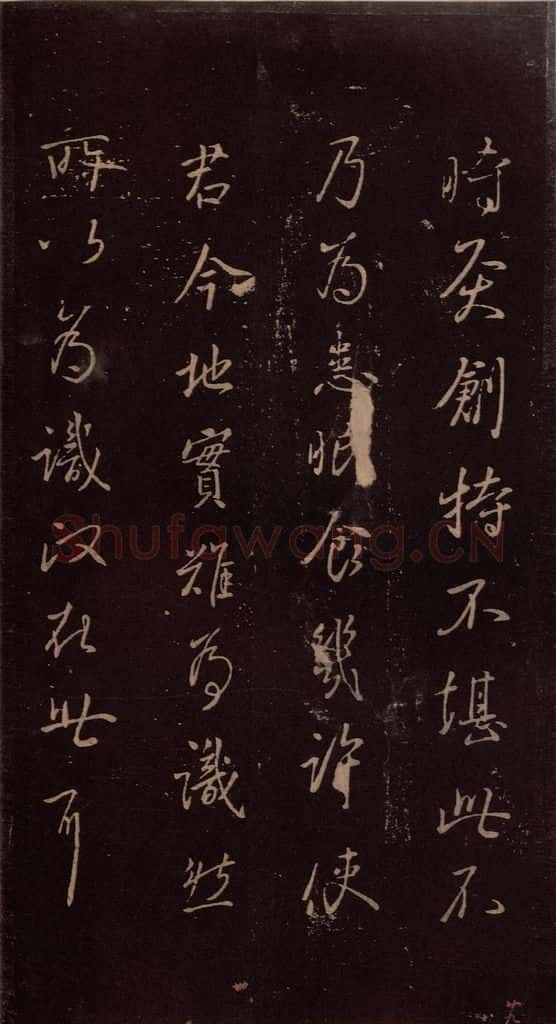 時灸創特不堪此不
乃為患眠食幾許使
君今地實難為識然
所以為識政在此耳
Shufawang.CN